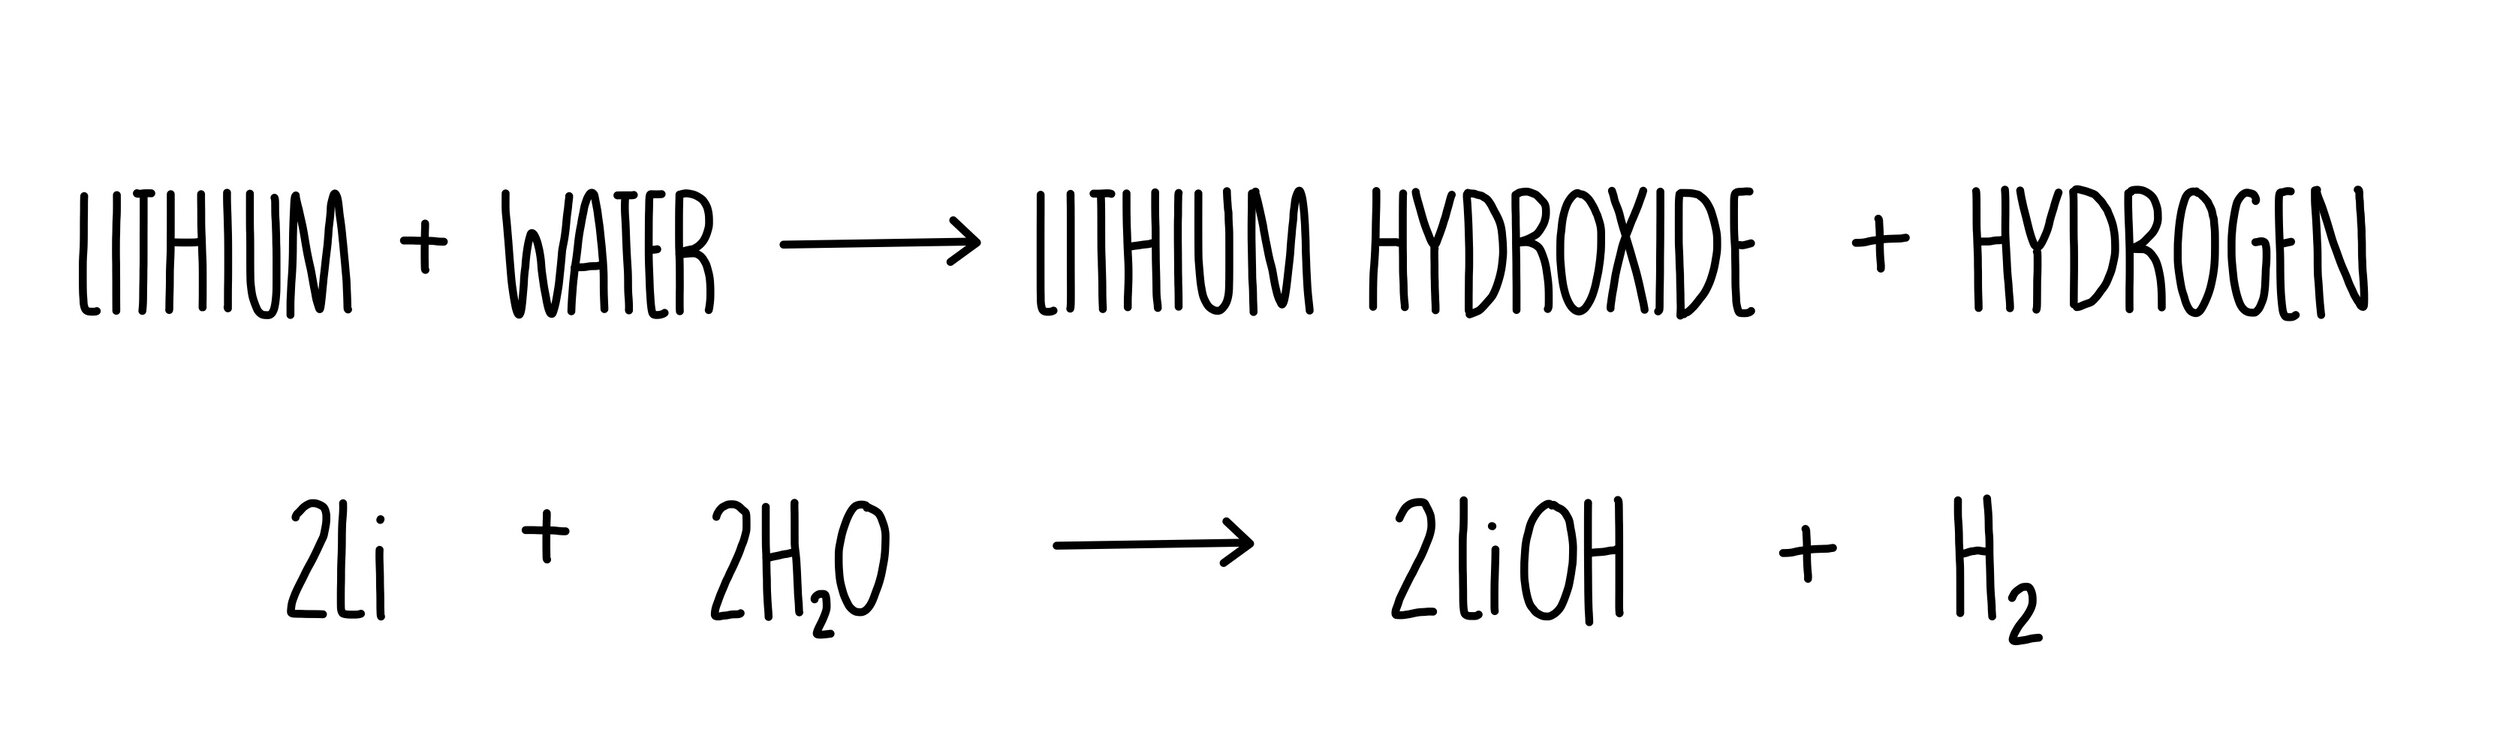 LITHIUM + WATER → LITHIUM HYDROXIDE + HYDROGEN
2Li + 2H₂O → 2LiOH + H₂